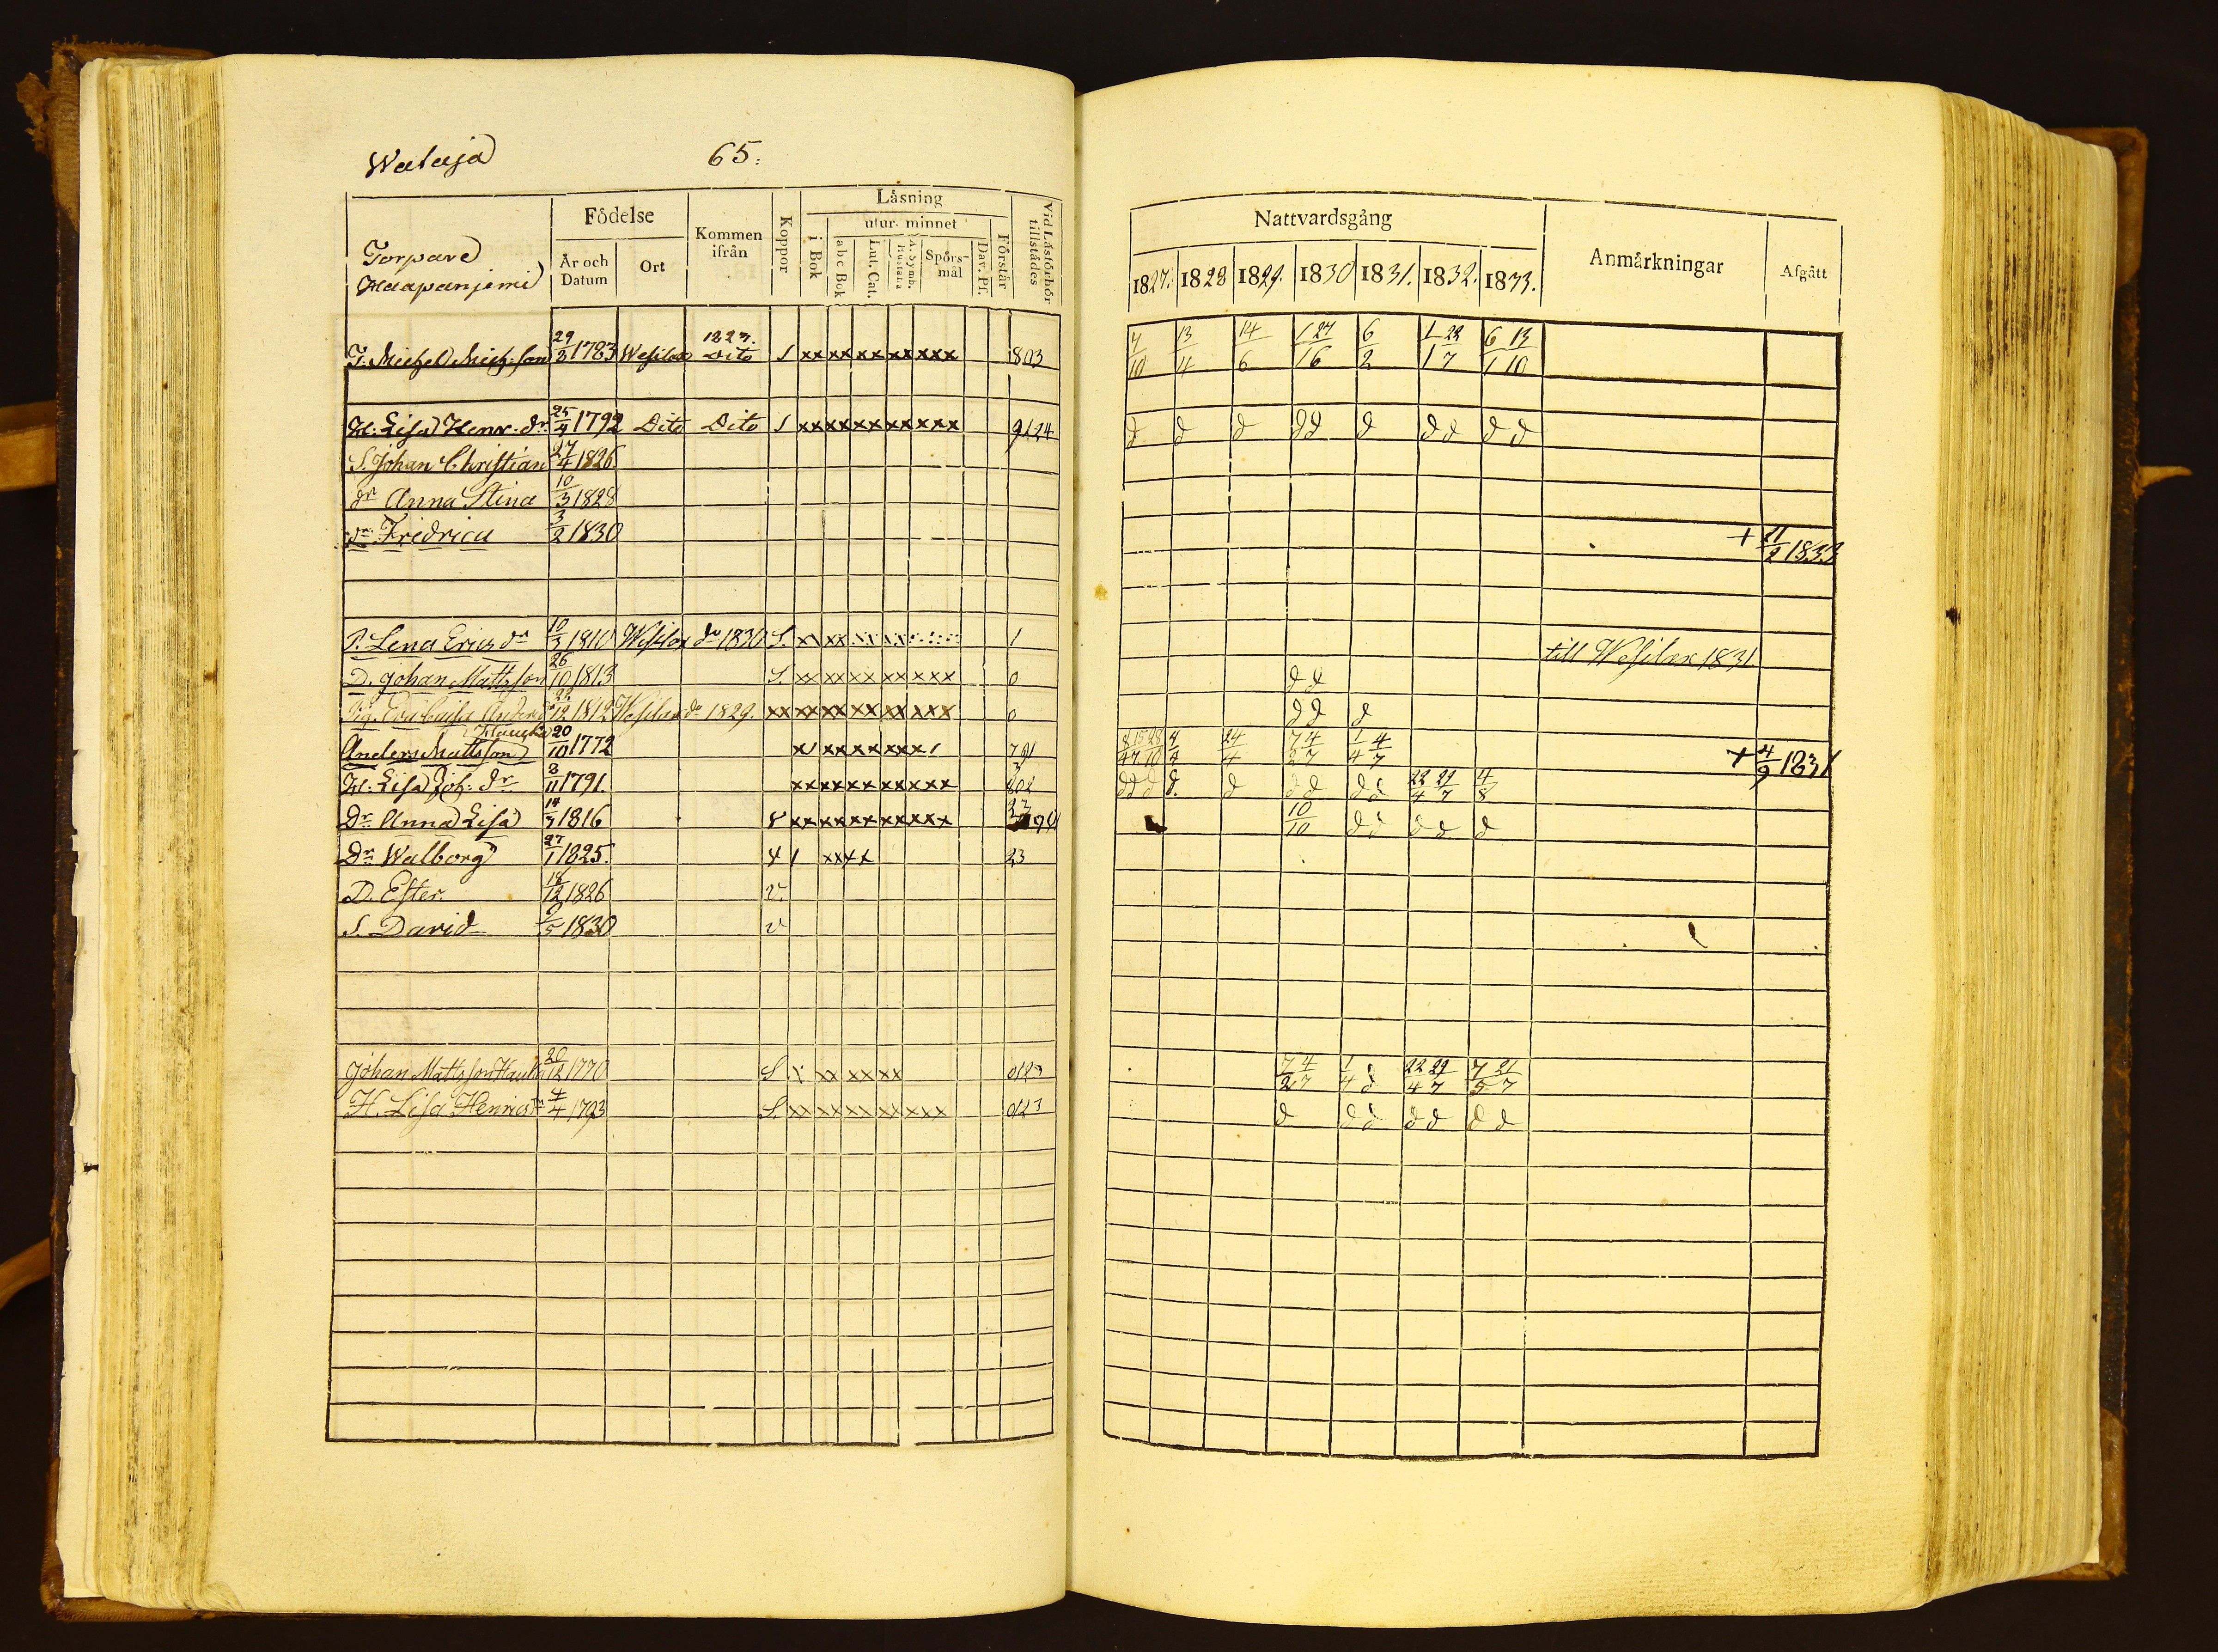 Wataja 65:
Torpare
Haapaniemi
Födelse
År och Datum
Ort
Kommen ifrån
Koppor
Låsning
i Bok
utur minnet
abc Bok
Lut. Cat.
A. Symb. Hustafla
Spörs-mål
Dav. Ps.
Förstår
Vid Låsförhör tillstådes
T. Michel Mich:son 29/3 1783 Wesilax 1827. Dito S xx xx xx xx xxx 1803
H: Lisa Henr. dr 25/4 1792 Dito Dito S xx xx xx xx xxx 9124
S. Johan Christian 27/4 1826
dr Anna Stina 10/3 1828
dr Fridrica 3/2 1830
P. Lena Erics dr 10/3 1810 Wesilax do 1830 S. 1
D. Johan Mattsson 26/10 1813 S. xx xx xx xx xxx 0
Pig. Eva Caisa Anders dr 22/12 1812 Wesilax do 1829. xx xx xx xx xx xxx 0
Hauck
Anders Mattsson 20/10 1772
H: Lisa Joh: dr 8/11 1791. xx xx xx xx xxx
Dr Anna Lisa 14/3 1816
Dr Walborg 27/1 1825. xx xx 23
D. Ester. 18/12 1826 v.
S. David /5 1830 v
Johan Mattsson Hauka 20/12 1770 S. xx xx xx
H. Lisa Henricsdr 4/4 1793 S. xx xx xx xx xxx
Nattvardsgång
1827. 1828 1829. 1830 1831. 1832. 1833.
Anmårkningar
Afgått
7/10 13/4 14/6 1 27/1 6 6/2 1 22/1 7 6 13/1 10
d d d dd d dd dd
+ 11/2 1833
till Wesilax 1831
dd
dd d
8 15 28/4 7 10 4/4 24/4 7 4/2 7 1 4/4 7 + 4/9 1831
ddd d. d dd dd 22 29/4 7 4/8
10/10 dd dd d
7 4/2 7 1/4 d 22 29/4 7 7 21/5 7
d dd dd dd